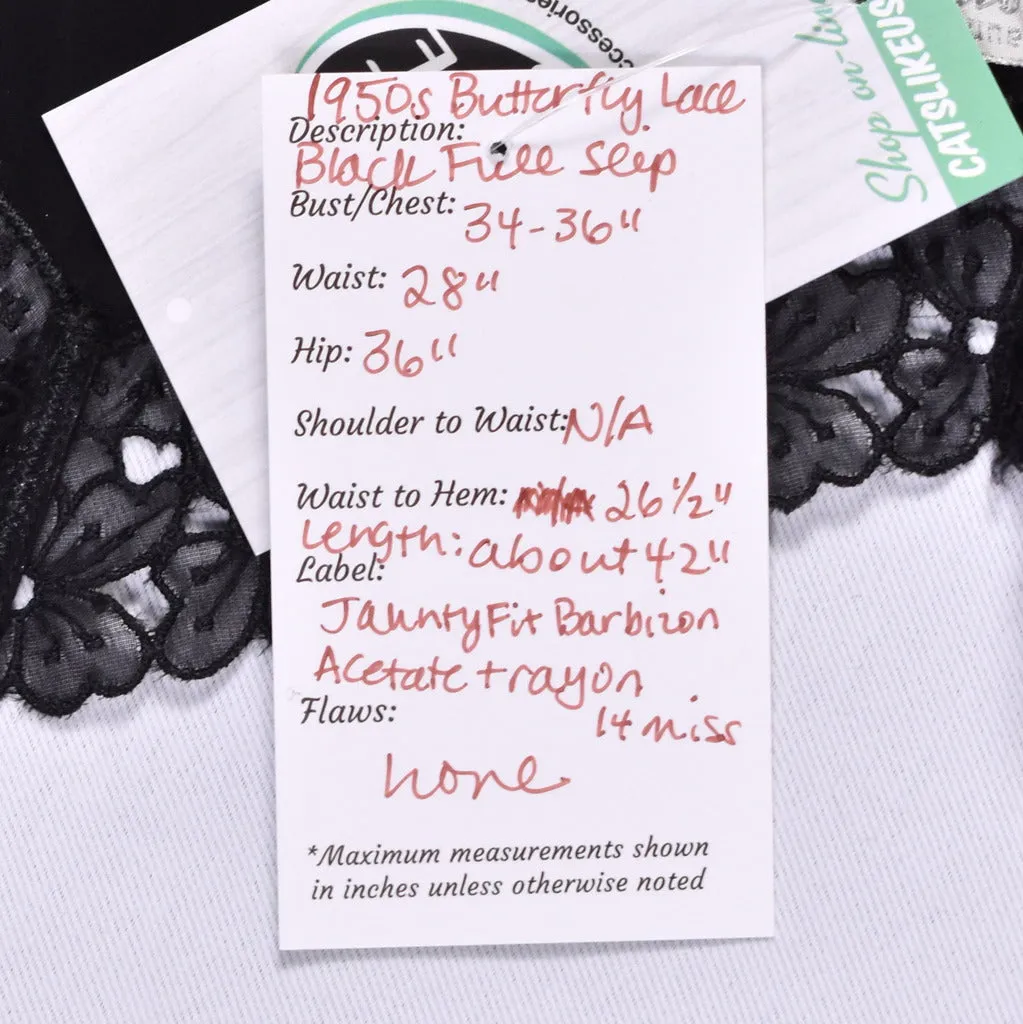 ccessories
Shop on-line
CATSLIKEUS
1950s Butterfly Lace
Description:
Black Full Slip
Bust/Chest: 34-36"
Waist: 28"
Hip: 36"
Shoulder to Waist: N/A
Waist to Hem: 26 1/2"
Length: about 42"
Label:
Jaunty Fit Barbizon
Acetate + rayon
Flaws: 14 miss
none
*Maximum measurements shown
in inches unless otherwise noted